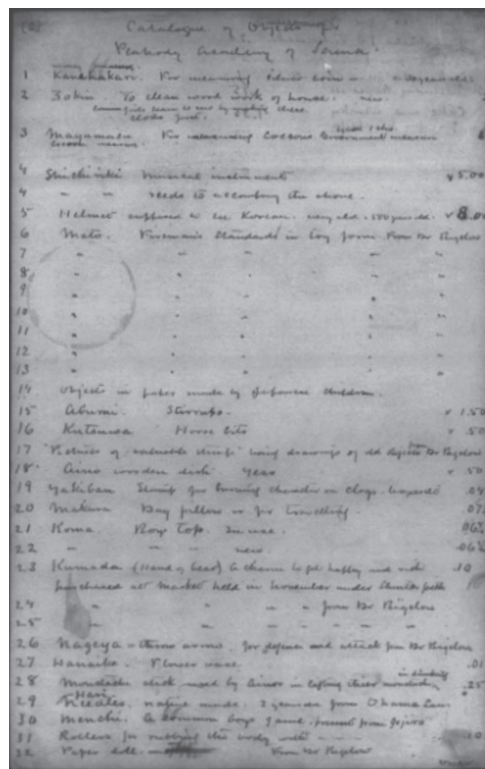 Catalogue of Objects
Peabody Academy of Science.
1 For measuring silver coin
2 Zokin. To clean wood work of house. new.
3 For measuring Government measure
4 Shichiriki musical instrument ¥5.00
4 " " reeds to accompany the above.
5 Helmet supposed to be Korean. very old. 500 years old. ¥8.00
6 Mato. Fireman's Standards in toy form From Dr Bigelow
7 " " " " "
8 " " " "
9 " " " "
10 " " " "
11 " " " "
12 " " " "
13 " " " "
14 Objects in paper made by Japanese children.
15 Abumi. Stirrups. ¥ 1.50
16 Kutsuwa Horse bits ¥ .50
17 "Pictures of valuable things" being drawings of old objects from Dr Bigelow
18 Aino wooden dish. ¥ .50
19 Yakiban Stamp for burning character on clogs.
20 Makura Day pillow or for travelling. .07
21 Koma. Boys top. In use. .06½
22 " " " new. .06½
23 Kumade (Hand of bear) A charm to get happy and rich .10
purchased at market held in November under Shinto
24 " " " " from Dr Bigelow
25 " " " " "
26 Nageya - throw arrow. for defence and attack from Dr Bigelow
27 Hanaike Flower vase. .01
28 Moustache stick used by Ainos in lifting their moustache in drinking .25
29 Hari Needles. native made. 2 years from Okama
30 Menchi. A common boys game. present from
31 Rollers for rubbing the body with .10
32 Paper doll. From Dr Bigelow